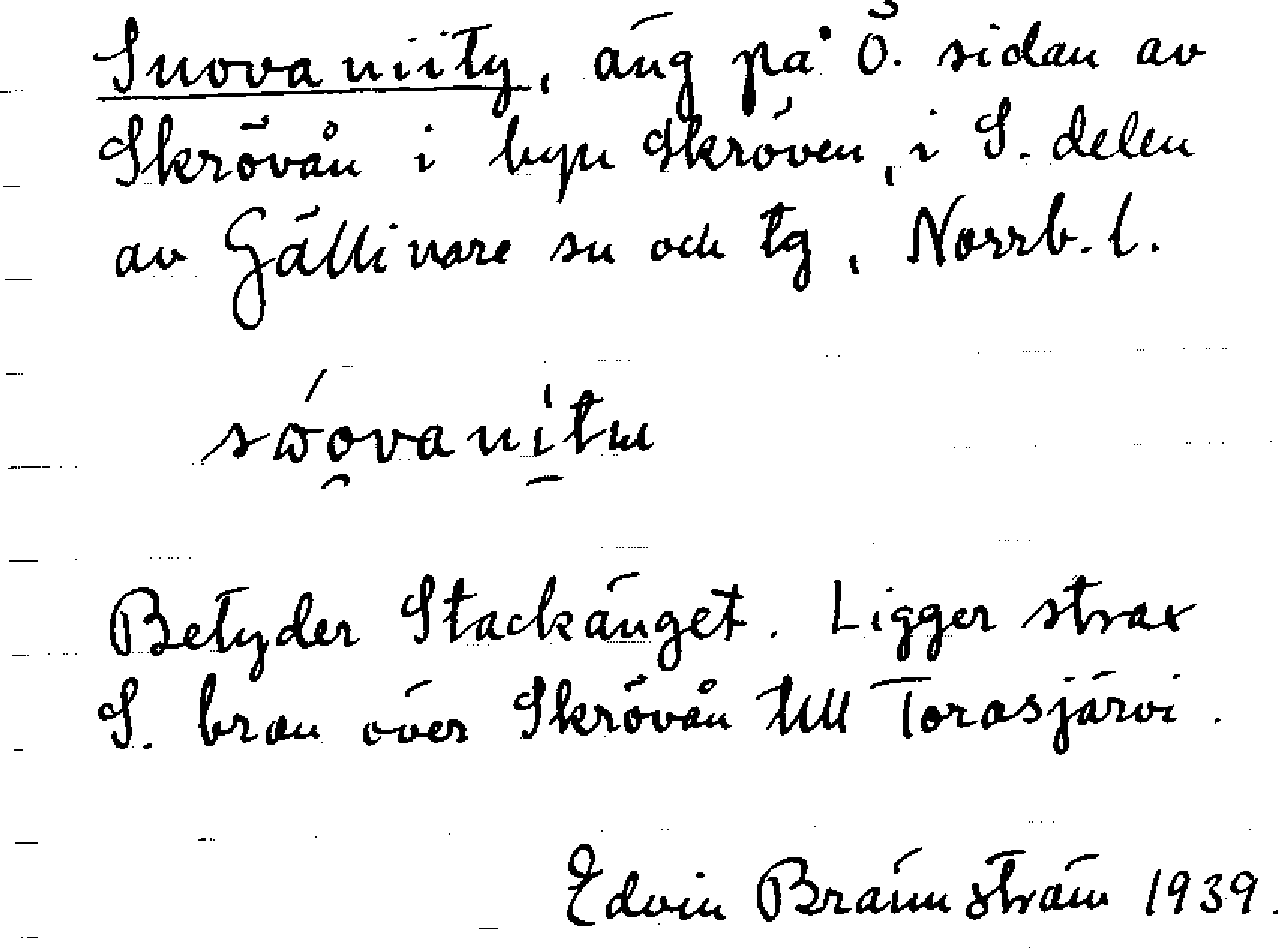 Suovaniity, äng på Ö. sidan av
Skrövån i byn Skröven, i S. delen
av Gällivare sn och tg, Norrb. l.
Betyder Stackänget. Ligger strax
S. bron över Skrövån till Torasjärvi.
Edvin Brännström 1939.